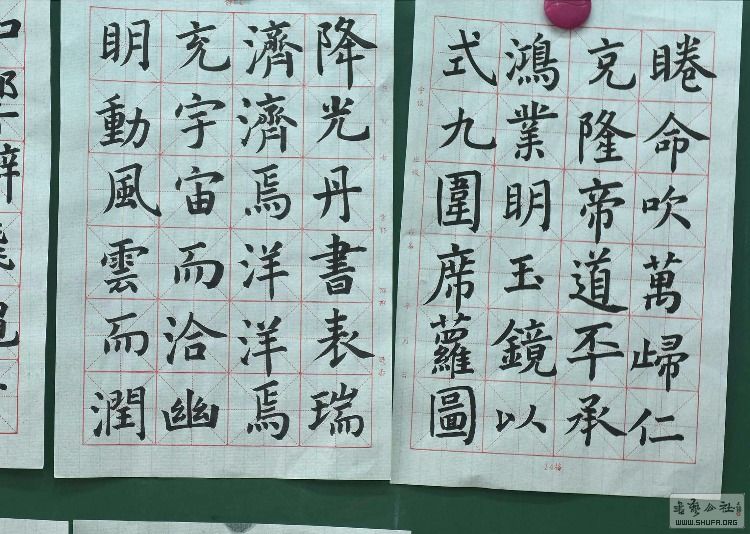 睠命吹萬歸仁
克隆帝道丕承
鴻業明玉鏡以
式九圍席蘿圖
降光丹書表瑞
濟濟焉洋洋焉
充宇宙而洽幽
明動風雲而潤
WWW.SHUFA.ORG